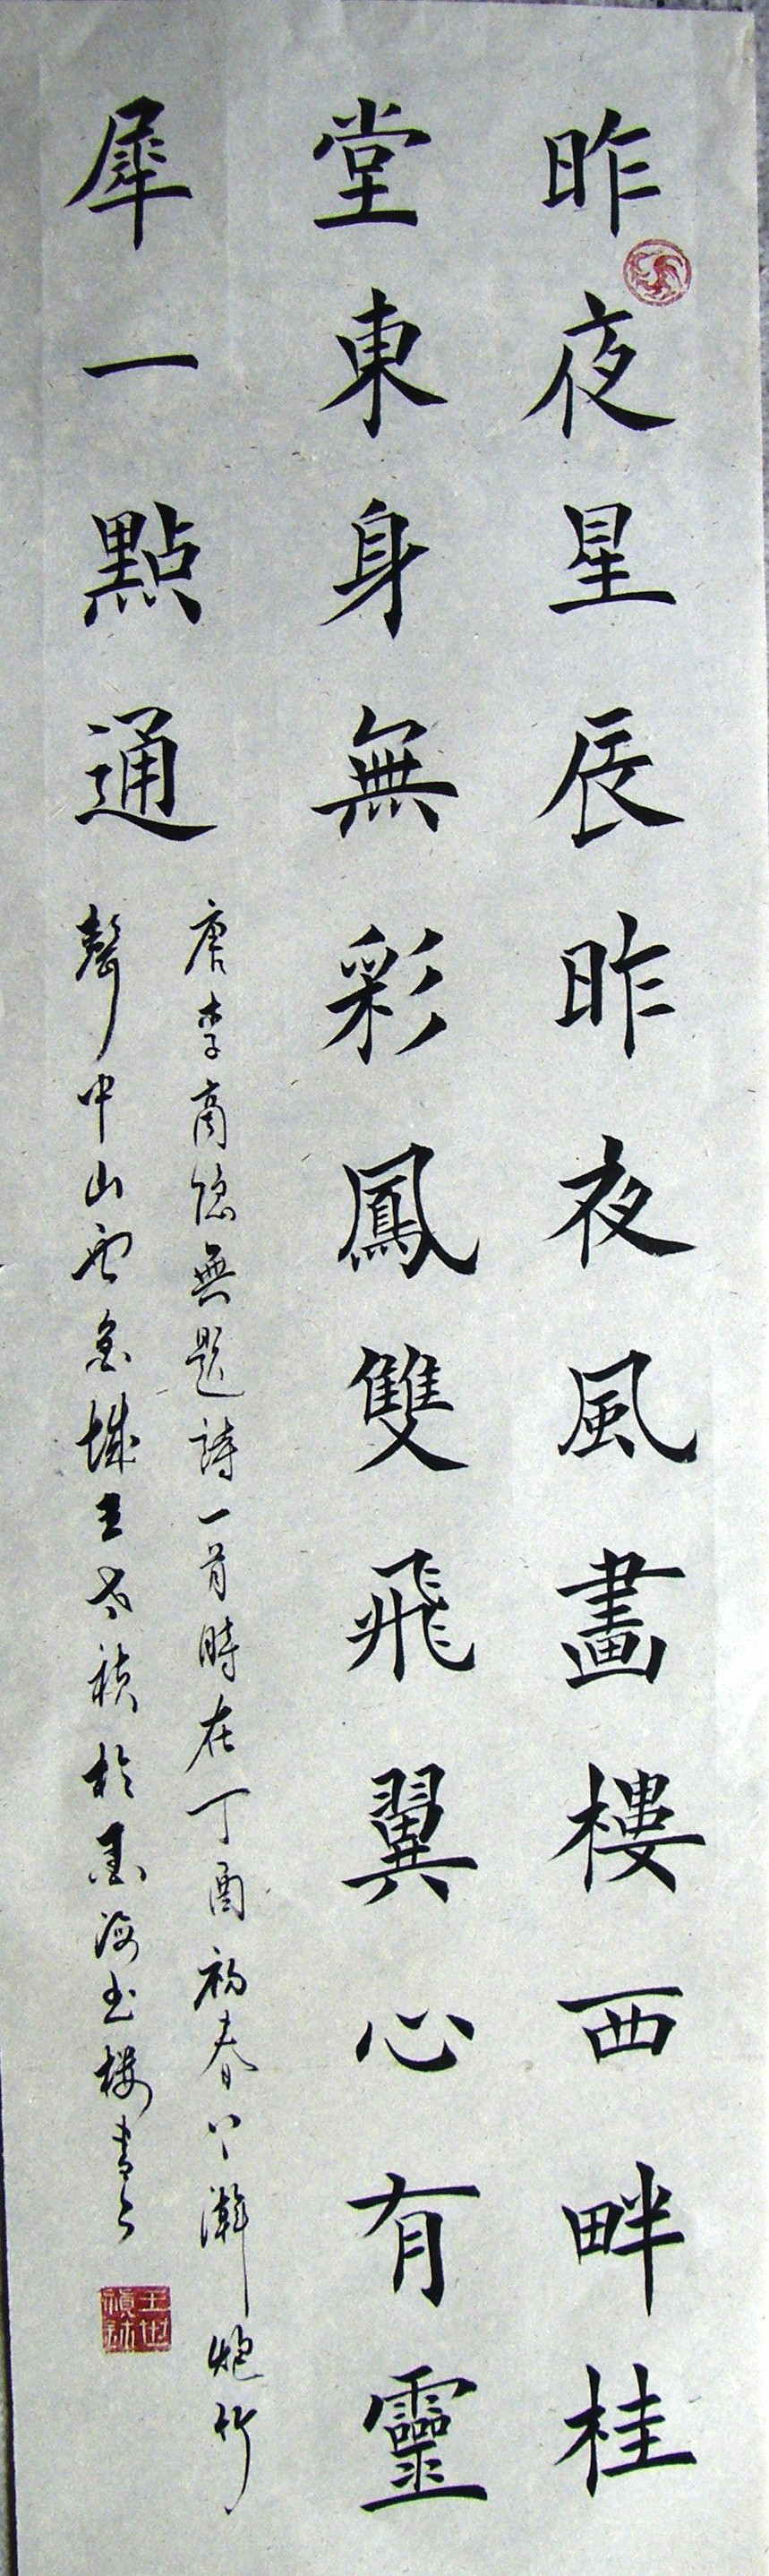 昨夜星辰昨夜風畫樓西畔桂
堂東身無彩鳳雙飛翼心有靈
犀一點通
唐李商隱無題詩一首時在丁酉初春之游炮竹
聲中山西金城王世禎於墨海書樓書之
王世禎鉥